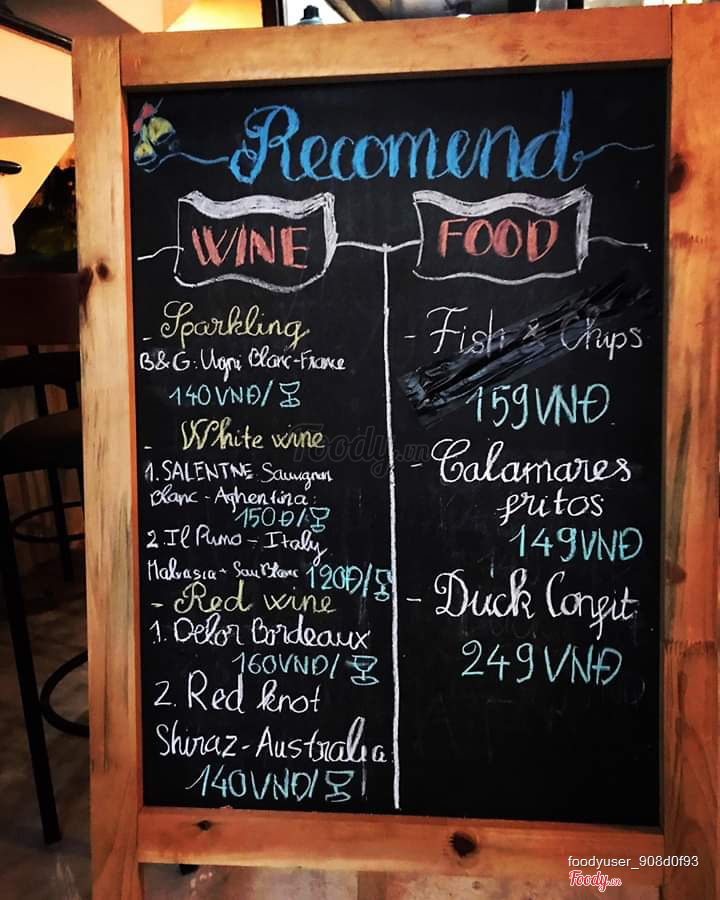 Recomend
WINE
- Sparkling
B&G: Ugni Blanc-France
140VNĐ/
- White wine
1. SALENTNE Sauvignon
Blanc - Aghentina:
150Đ/
2. Il Pumo - Italy
Malvasia - Sau Blanc 120Đ/
- Red wine
1. Delor Bordeaux
160VNĐ/
2. Red knot
Shiraz - Australia
140VNĐ/
FOOD
- Fish & Chips
159VNĐ
- Calamares
fritos
149VNĐ
- Duck Congit
249VNĐ
Foody.vn
foodyuser_908d0f93
Foody.vn